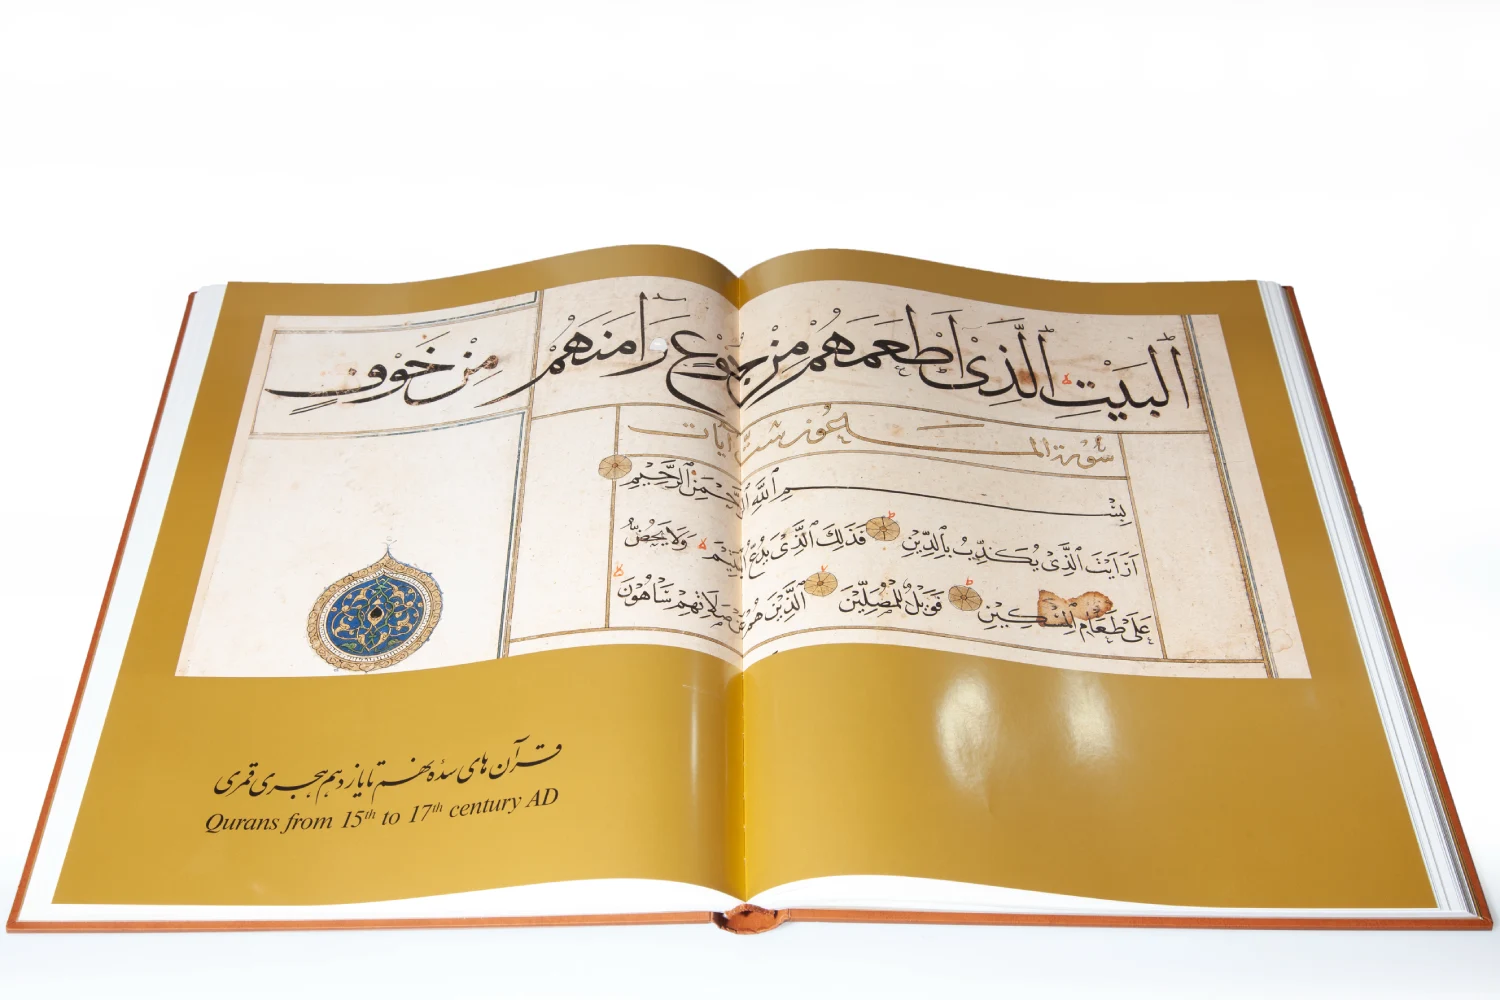 البَيْتِ الَّذِىْ اَطْعَمَهُمْ مِنْ جُوْعٍ وَاٰمَنَهُمْ مِنْ خَوْفٍ
سُوْرَة الماعون ستّ آيات
بِسْمِ ٱللَّهِ ٱلرَّحْمَنِ ٱلرَّحِيْمِ
اَرَاَيْتَ ٱلَّذِىْ يُكَذِّبُ بِٱلدِّيْنِ فَذَلِكَ ٱلَّذِىْ يَدُعُّ ٱلْيَتِيْمَ وَلَا يَحُضُّ
عَلَى طَعَامِ ٱلْمِسْكِيْنِ فَوَيْلٌ لِلْمُصَلِّيْنَ ٱلَّذِيْنَ هُمْ عَنْ صَلَاتِهِمْ سَاهُوْنَ
قرآن های سدهٔ نهم تا یازدهم هجری قمری
Qurans from 15th to 17th century AD